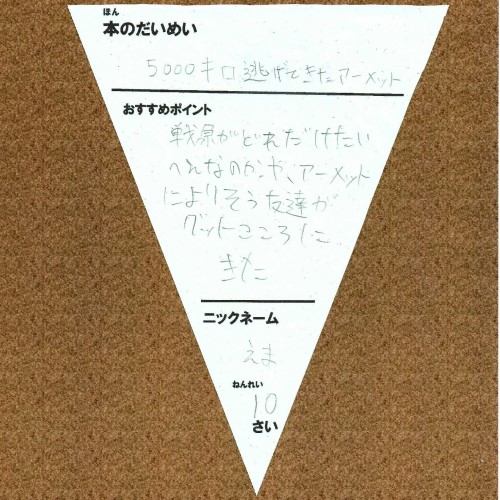 ほん
本のだいめい
5000キロ逃げてきたアーメット
おすすめポイント
戦争がどれだけたい
へんなのかや、アーメット
によりそう友達が
グットこころに
きた
ニックネーム
えま
ねんれい
10
さい